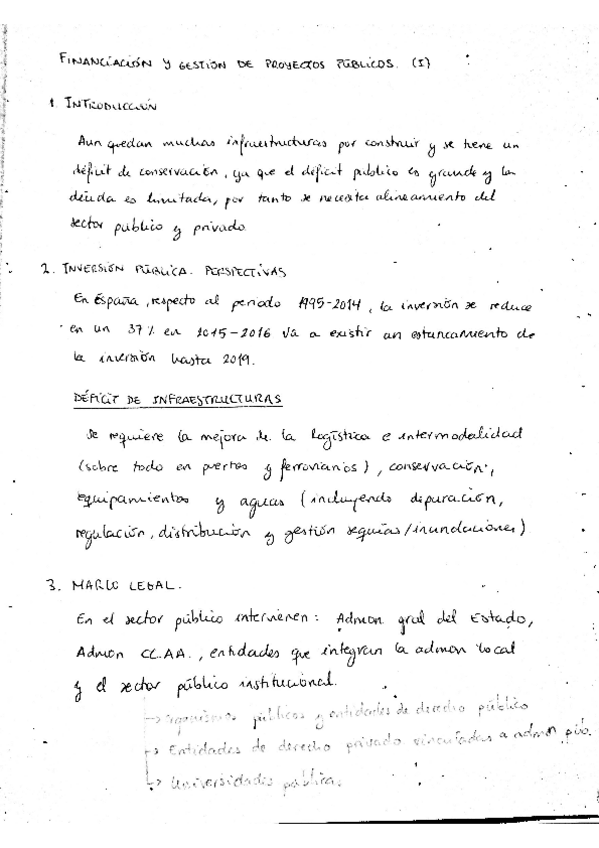 FINANCIACIÓN Y GESTIÓN DE PROYECTOS PÚBLICOS. (I)
1. INTRODUCCIÓN
Aun quedan muchas infraestructuras por construir y se tiene un
déficit de conservación, ya que el déficit público es grande y la
deuda es limitada, por tanto se necesita alineamiento del
sector público y privado
2. INVERSIÓN PÚBLICA. PERSPECTIVAS
En España, respecto al periodo 1995-2014, la inversión se reduce
en un 37% en 2015-2016 va a existir un estancamiento de
la inversión hasta 2019.
DÉFICIT DE INFRAESTRUCTURAS
Se requiere la mejora de la logística e intermodalidad
(sobre todo en puertos y ferroviarios), conservación,
equipamientos y aguas (incluyendo depuración,
regulación, distribución y gestión sequías/inundaciones)
3. MARCO LEGAL.
En el sector público intervienen: Admon gral del Estado,
Admon CC.AA., entidades que integran la admon local
y el sector público institucional.
→ organismos públicos y entidades de derecho público
→ Entidades de derecho privado vinculadas a admon púb.
→ Universidades públicas